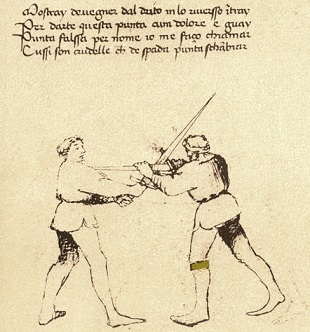 Mostray de vegner dal drito in lo riverso i tray
Per darte questa punta cum dolore e guay
Punta falssa per nome io me faço chiamar
Cussi son crudelle ch de spada punta schâbiar